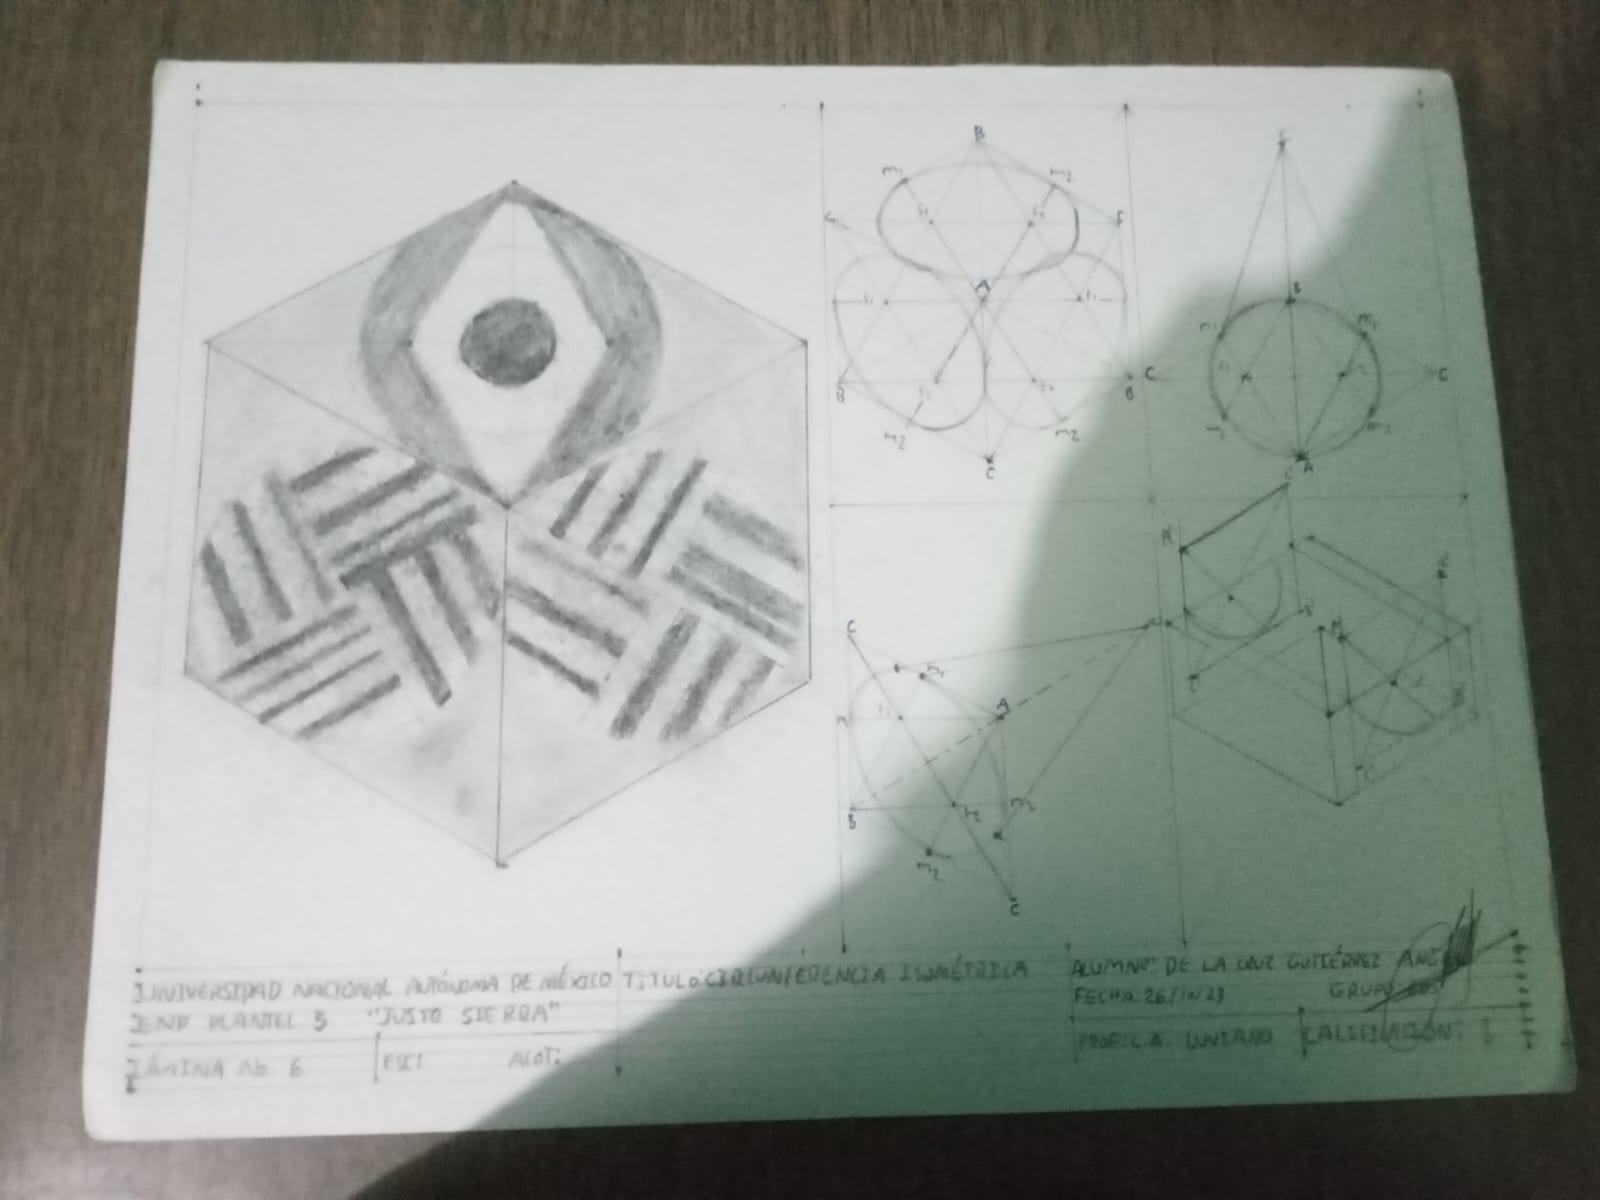 B
m1
m2
C
F
F1
F2
A
F1
F1
B
F2
F2
B
m2
m2
C
B
m1
m2
C
F1
F2
C
m1
m2
A
C
B
C
m1
F1
A
B
F2
m2
m2
C
UNIVERSIDAD NACIONAL AUTÓNOMA DE MÉXICO
ENP PLANTEL 3 "JUSTO SIERRA"
LÁMINA No. 6
ESC:
ACOT:
TITULO: CIRCUNFERENCIA ISOMÉTRICA
ALUMNO: DE LA CRUZ GUTIÉRREZ ANGEL
FECHA: 26/10/23
GRUPO:
PROF: L.A. LUVIANO
CALIFICACIÓN: